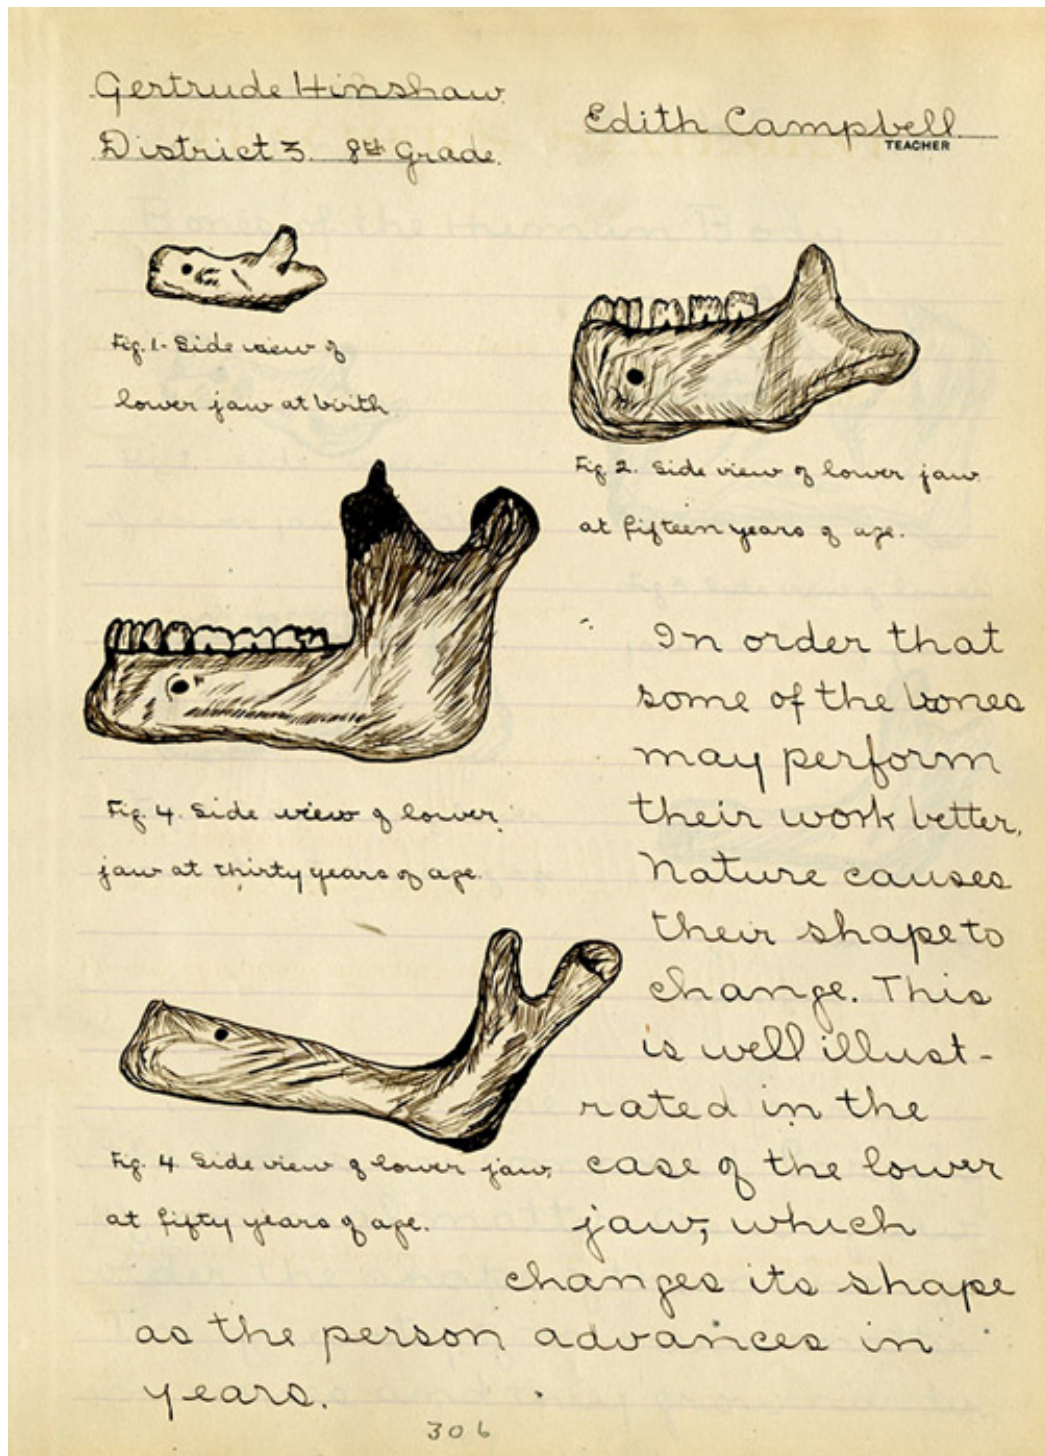 Gertrude Hinshaw
District 3. 8th Grade.
Edith Campbell
TEACHER
Fig. 1. Side view of
lower jaw at birth
Fig 2. Side view of lower jaw
at fifteen years of age.
Fig. 4. Side view of lower
jaw at thirty years of age.
Fig. 4. Side view of lower jaw
at fifty years of age.
In order that
some of the bones
may perform
their work better,
Nature causes
their shape to
change. This
is well illust-
rated in the
case of the lower
jaw, which
changes its shape
as the person advances in
years.
306